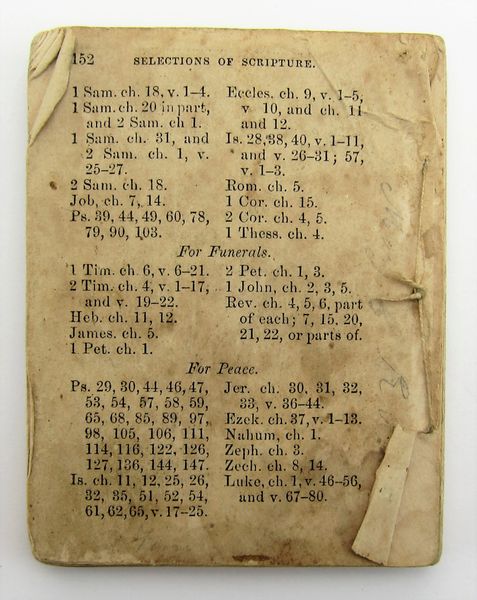 152 SELECTIONS OF SCRIPTURE.
1 Sam. ch. 18, v. 1-4.
1 Sam. ch. 20 in part,
and 2 Sam. ch 1.
1 Sam. ch. 31, and
2 Sam. ch. 1, v.
25-27.
2 Sam. ch. 18.
Job, ch. 7, 14.
Ps. 39, 44, 49, 60, 78,
79, 90, 103.
Eccles. ch. 9, v. 1-5,
v 10, and ch. 11
and 12.
Is. 28, 38, 40, v. 1-11,
and v. 26-31; 57,
v. 1-3.
Rom. ch. 5.
1 Cor. ch. 15.
2 Cor. ch. 4, 5.
1 Thess. ch. 4.
For Funerals.
1 Tim. ch. 6, v. 6-21.
2 Tim. ch. 4, v. 1-17,
and v. 19-22.
Heb. ch. 11, 12.
James. ch. 5.
1 Pet. ch. 1.
2 Pet. ch. 1, 3.
1 John, ch. 2, 3, 5.
Rev. ch. 4, 5, 6, part
of each; 7, 15. 20,
21, 22, or parts of.
For Peace.
Ps. 29, 30, 44, 46, 47,
53, 54, 57, 58, 59,
65, 68, 85, 89, 97,
98, 105, 106, 111,
114, 116, 122, 126,
127, 136, 144, 147.
Is. ch. 11, 12, 25, 26,
32, 35, 51, 52, 54,
61, 62, 65, v. 17-25.
Jer. ch. 30, 31, 32,
33, v. 36-44.
Ezek. ch. 37, v. 1-13.
Nahum, ch. 1.
Zeph. ch. 3.
Zech. ch. 8, 14.
Luke, ch. 1, v. 46-56,
and v. 67-80.